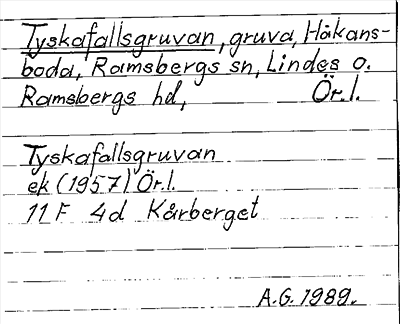 Tyskafallsgruvan, gruva, Håkans-
boda, Ramsbergs sn, Lindes o.
Ramsbergs hd, Ör.l.
Tyskafallsgruvan
ek (1957) Ör.l.
11 F 4d Kårberget
A.G. 1989.